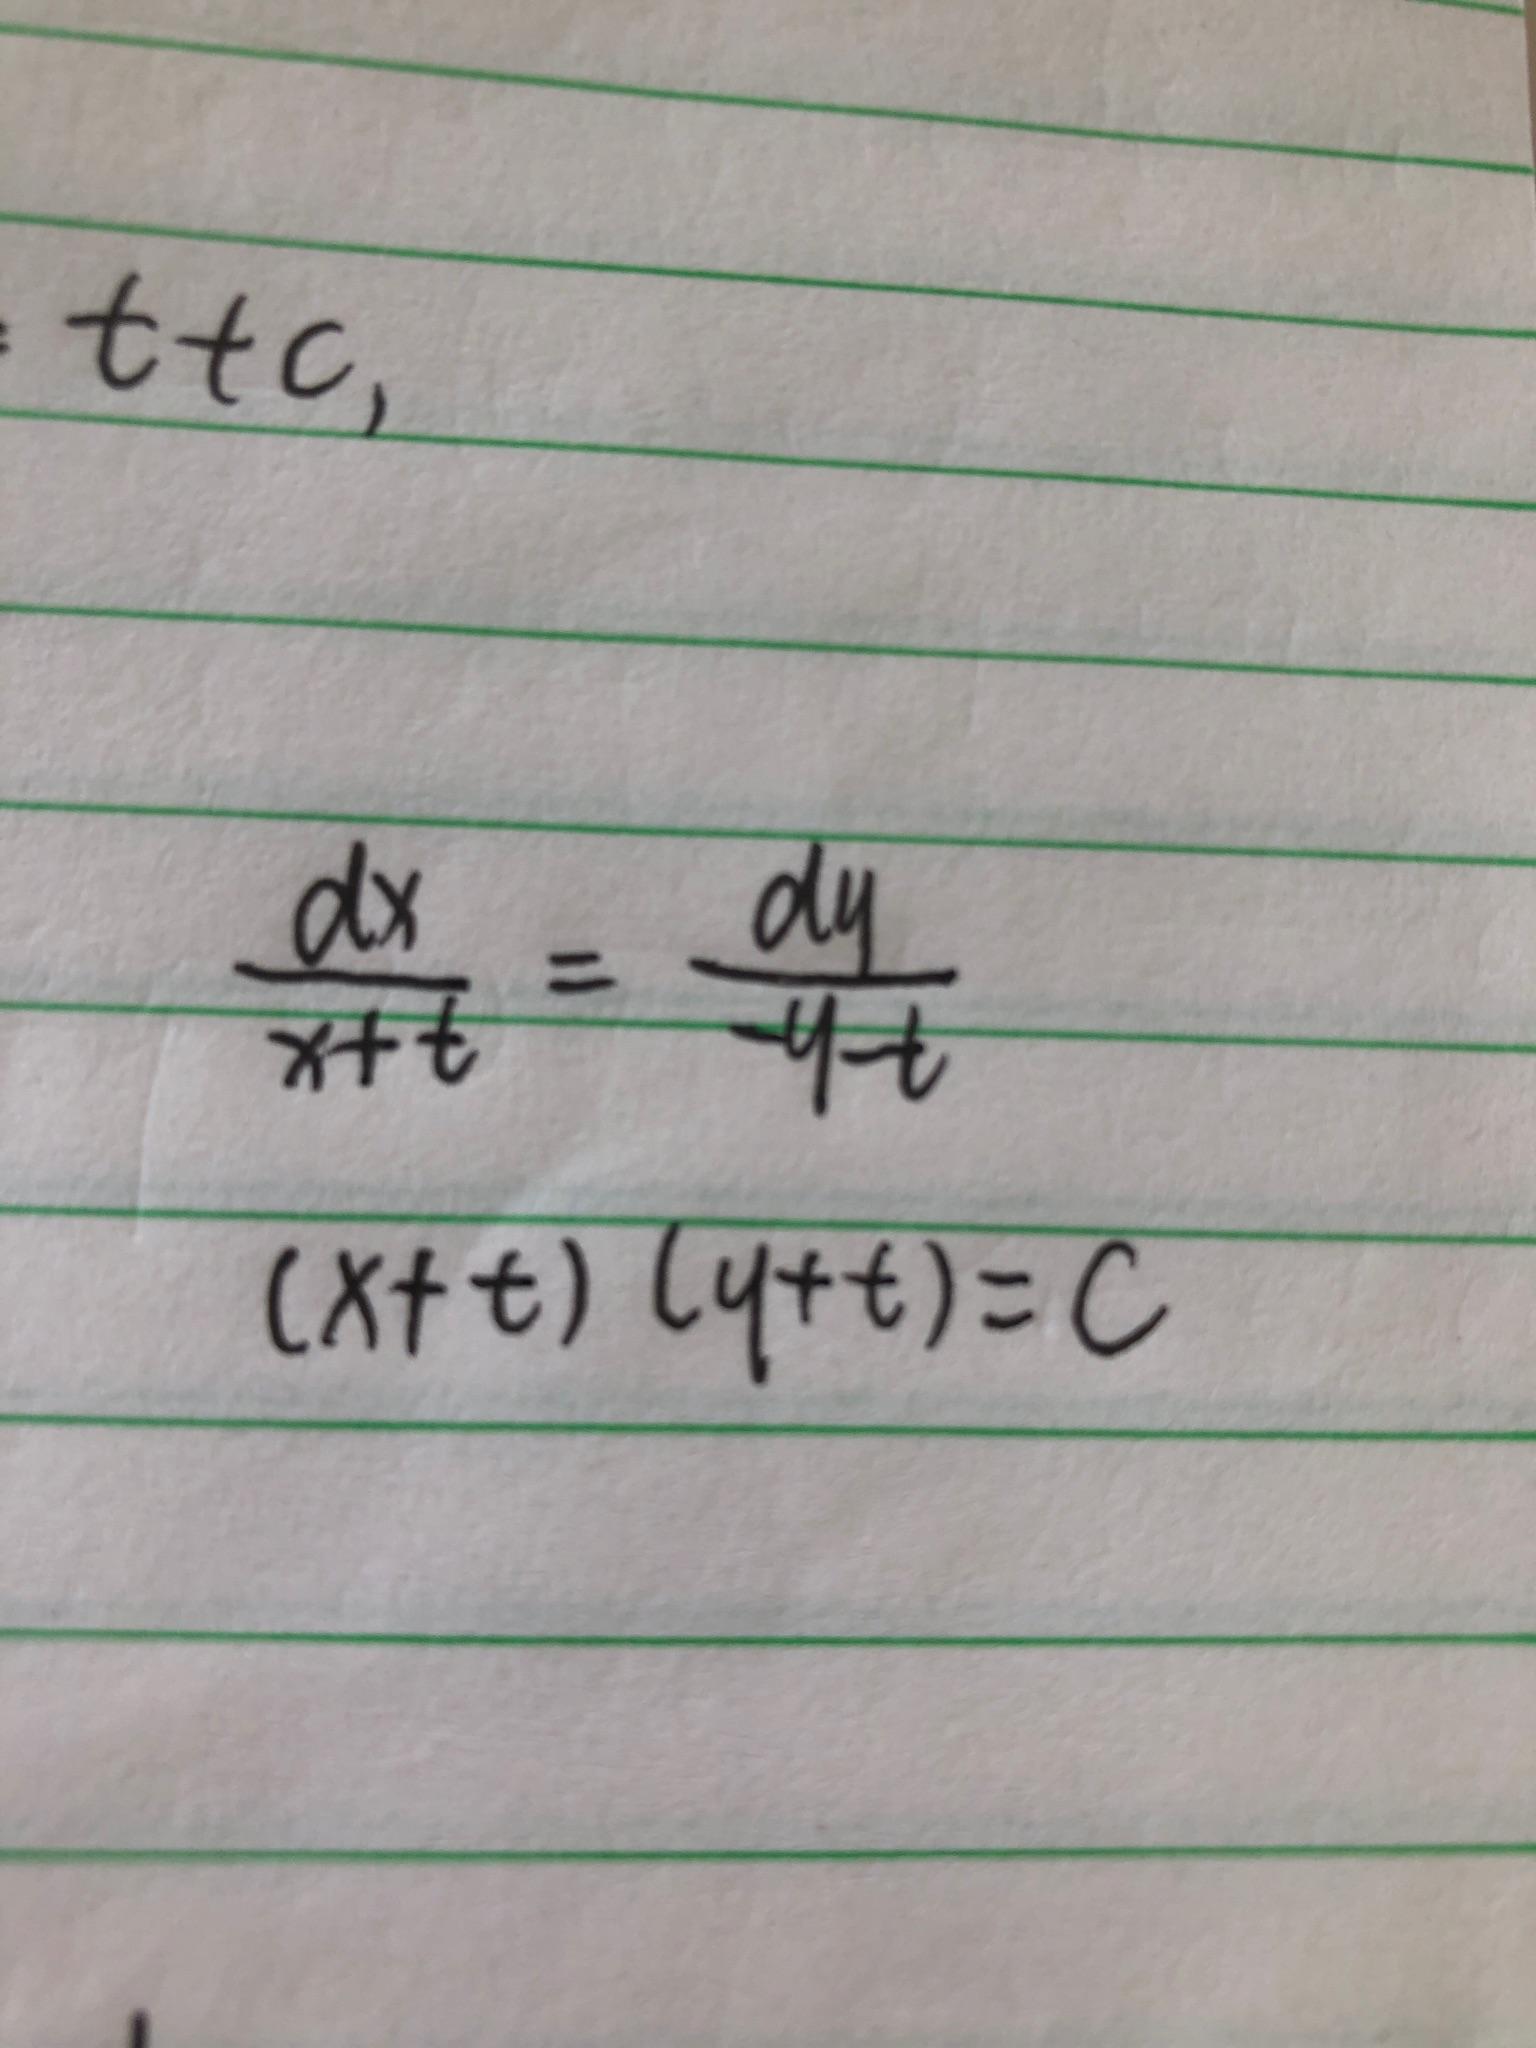 = t+c,
dx/x+t = dy/-y-t
(x+t) (y+t) = C